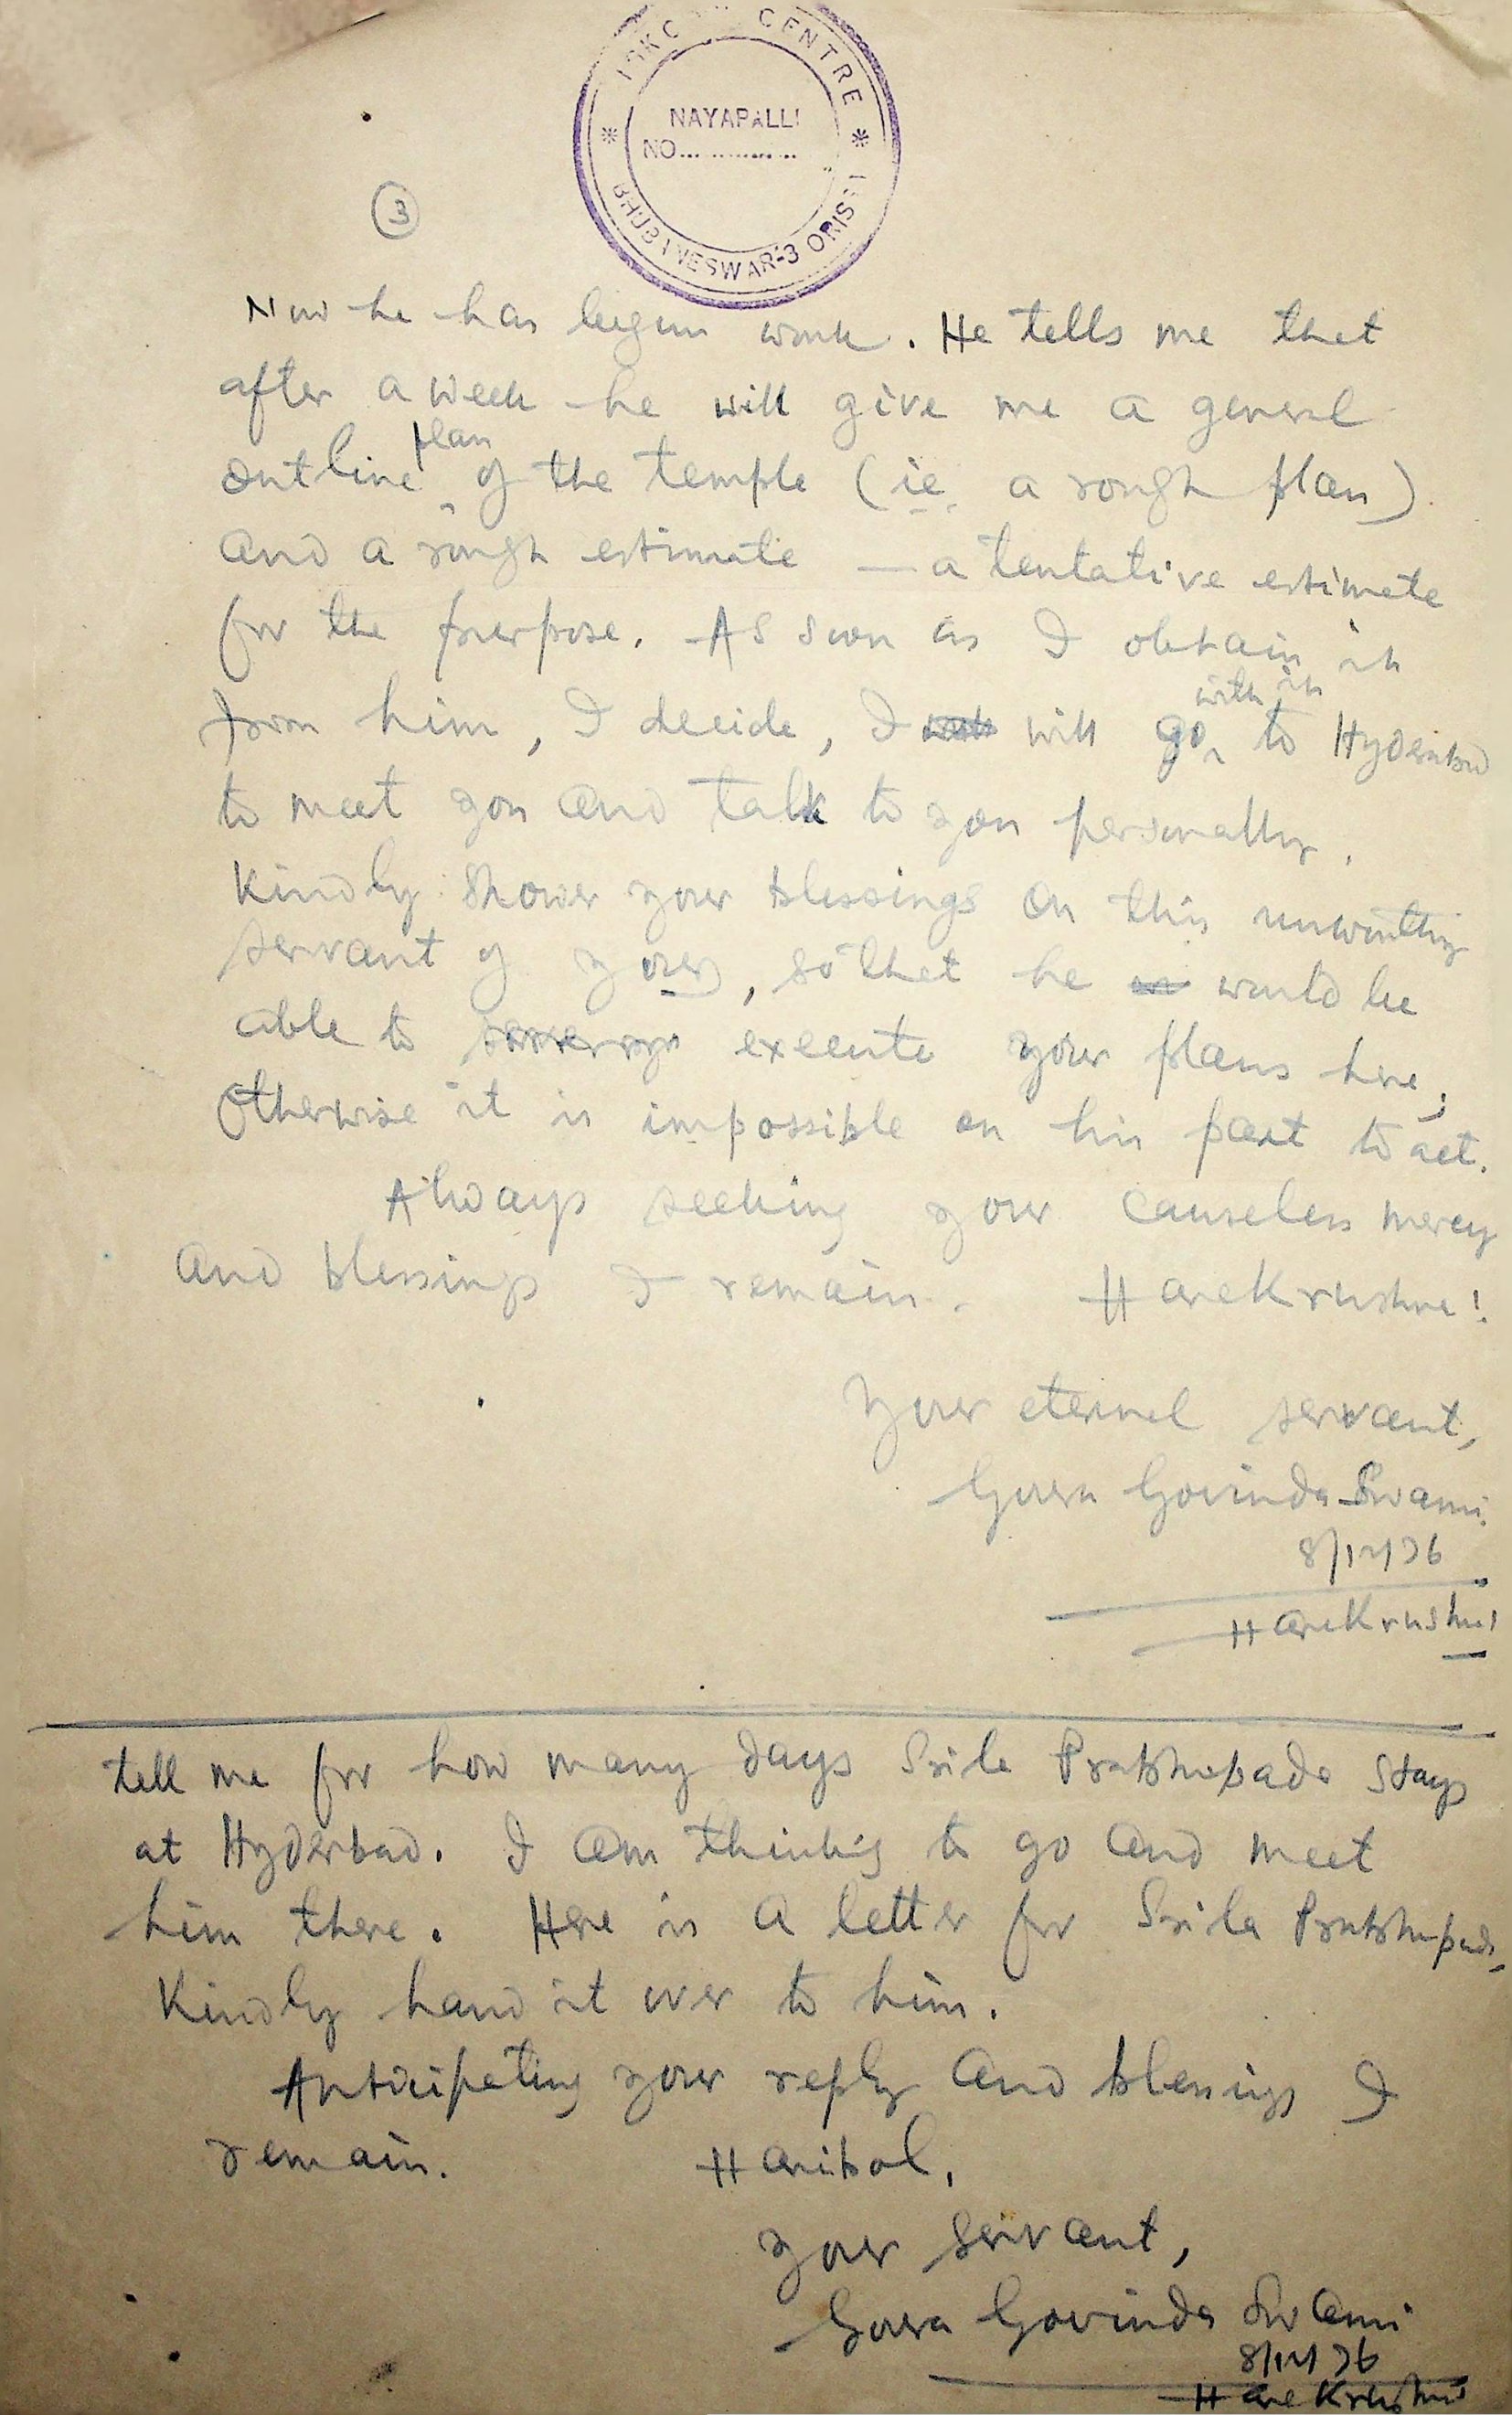 ISKCON CENTRE
NAYAPALLI
NO..............
BHUBANESWAR-3 ORISSA
3
Now he has begun work. He tells me that
after a week he will give me a general
outline plan of the temple (ie. a rough plan)
and a rough estimate — a tentative estimate
for the purpose. As soon as I obtain it
from him, I decide, I will go with it to Hyderabad
to meet you and talk to you personally.
Kindly shower your blessings on this unworthy
servant of yours, so that he would be
able to execute your plans here,
Otherwise it is impossible on his part to act.
Always seeking your causeless mercy
and blessings I remain. Hare Krushna!
Your eternal servant,
Goura Govinda Swami
8/12/76
Hare Krushna!
tell me for how many days Srila Prabhupada stays
at Hyderbad. I am thinking to go and meet
him there. Here is a letter for Srila Prabhupada,
Kindly hand it over to him.
Anticipating your reply and blessings I
remain. Haribol,
Your servant,
Goura Govinda Swami
8/12/76
Hare Krushna